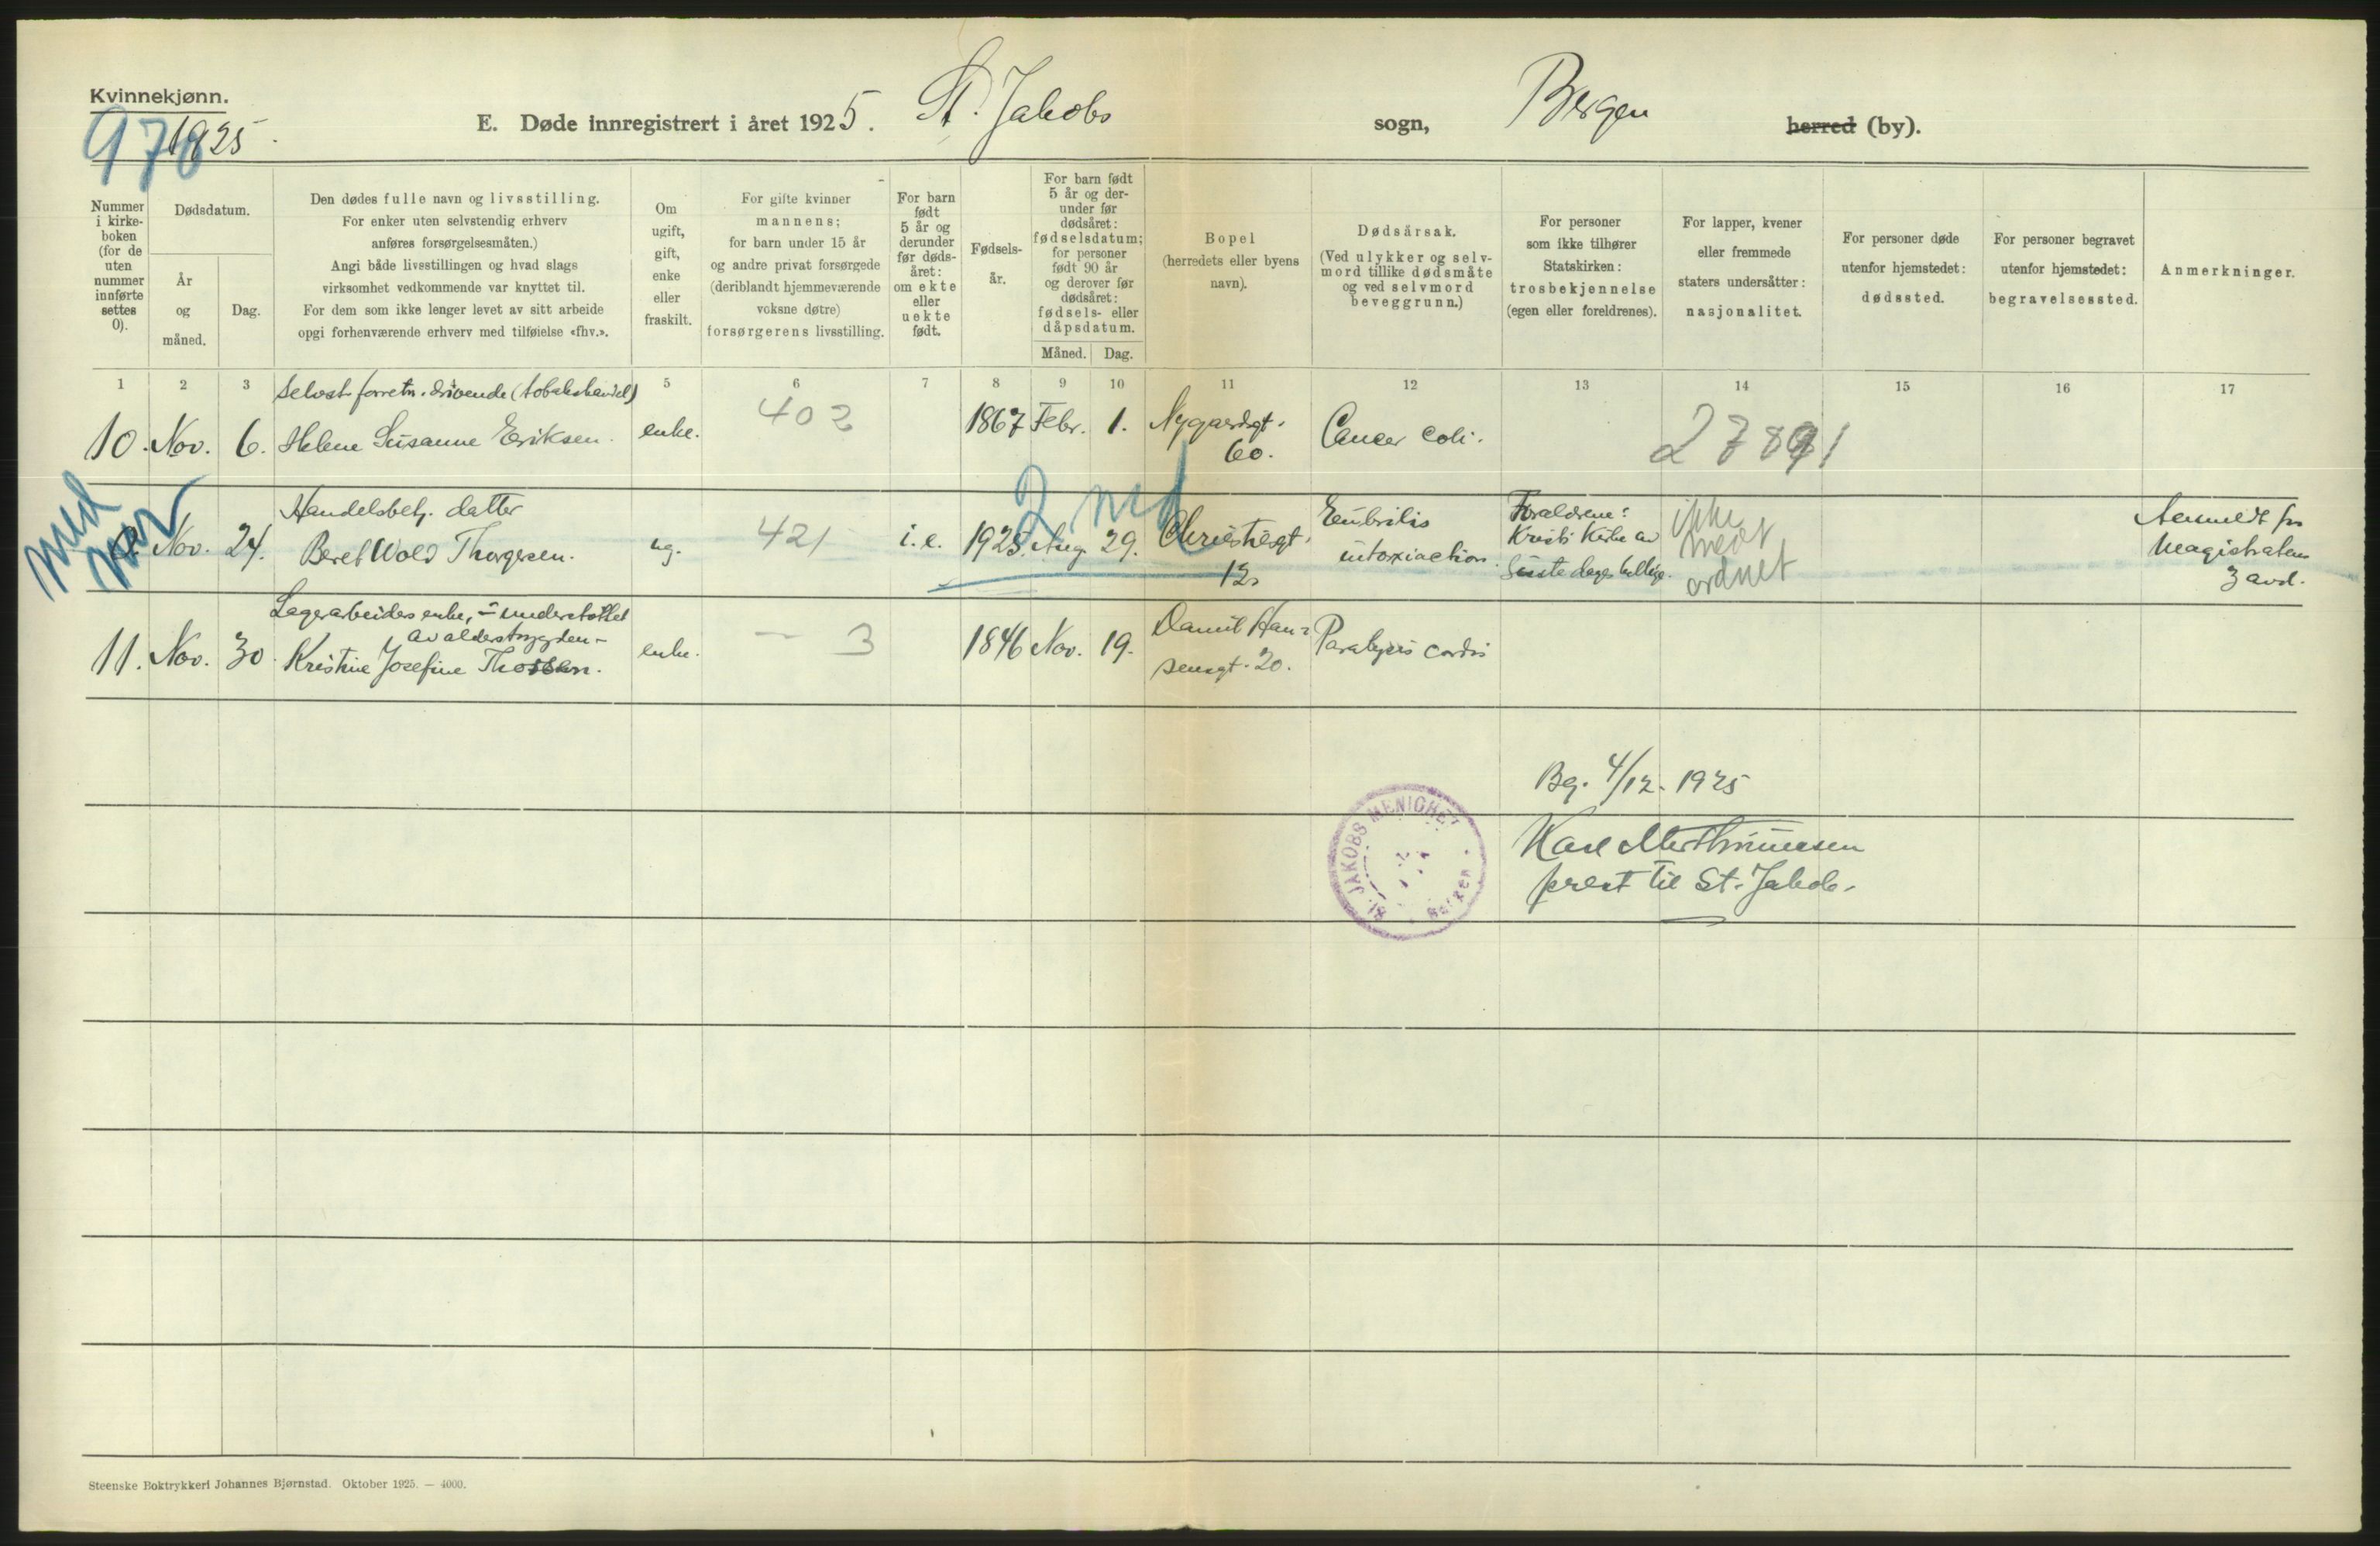 Kvinnekjønn.
978
1925.
E. Døde innregistrert i året 1925. St. Jakobs sogn, Bergen herred (by).
Nummer i kirke-boken (for de uten nummer innførte settes 0).
Dødsdatum.
År og måned.
Dag.
Den dødes fulle navn og livsstilling.
For enker uten selvstendig erhverv
anføres forsørgelsesmåten.)
Angi både livsstillingen og hvad slags
virksomhet vedkommende var knyttet til.
For dem som ikke lenger levet av sitt arbeide
opgi forhenværende erhverv med tilføielse «fhv.».
Om ugift, gift, enke eller fraskilt.
For gifte kvinner
mannens;
for barn under 15 år
og andre privat forsørgede
(deriblandt hjemmeværende
voksne døtre)
forsørgerens livsstilling.
For barn født 5 år og derunder før døds-året: om ekte eller uekte født.
Fødsels-år.
For barn født 5 år og der-under før dødsåret: fødselsdatum; for personer født 90 år og derover før dødsåret: fødsels- eller dåpsdatum.
Måned. Dag.
Bopel
(herredets eller byens
navn).
Dødsårsak.
(Ved ulykker og selv-
mord tillike dødsmåte
og ved selvmord
beveggrunn.)
For personer
som ikke tilhører
Statskirken:
trosbekjennelse
(egen eller foreldrenes).
For lapper, kvener
eller fremmede
staters undersåtter:
nasjonalitet.
For personer døde
utenfor hjemstedet:
dødssted.
For personer begravet
utenfor hjemstedet:
begravelsessted.
Anmerkninger.
1 2 3 5 6 7 8 9 10 11 12 13 14 15 16 17
Selvst. forretn. drivende (tobakshandel)
10. Nov. 6. Helene Susanne Eriksen. enke. 402 1867 Febr. 1. Nygaardsgt. 60. Cancer coli. 27891
med
Handelsbetj. datter
Nov. 24. Beret Wold Thorgersen. ug. 421 i.e. 1925. Aug. 29. Christiesgt. 12.
2 md
intoxiaction.
Foreldrene:
Kristi Kirke av
Siste dages hellige.
ikke
medt
ordnet
Anmeldt fra
Magistraten
3 avd.
Lagerarbeiders enke, – understøttet
av alderstrygden –
11. Nov. 30. Kristine Josefine Thorsen. enke. — 3 1846 Nov. 19. Daniel Han-
sensgt. 20. Paralysis cordis
Bg. 4/12. 1925
Karl
prest til St. Jakob.
St. JAKOBS MENIGHET
Bergen
Steenske Boktrykkeri Johannes Bjørnstad. Oktober 1925. — 4000.